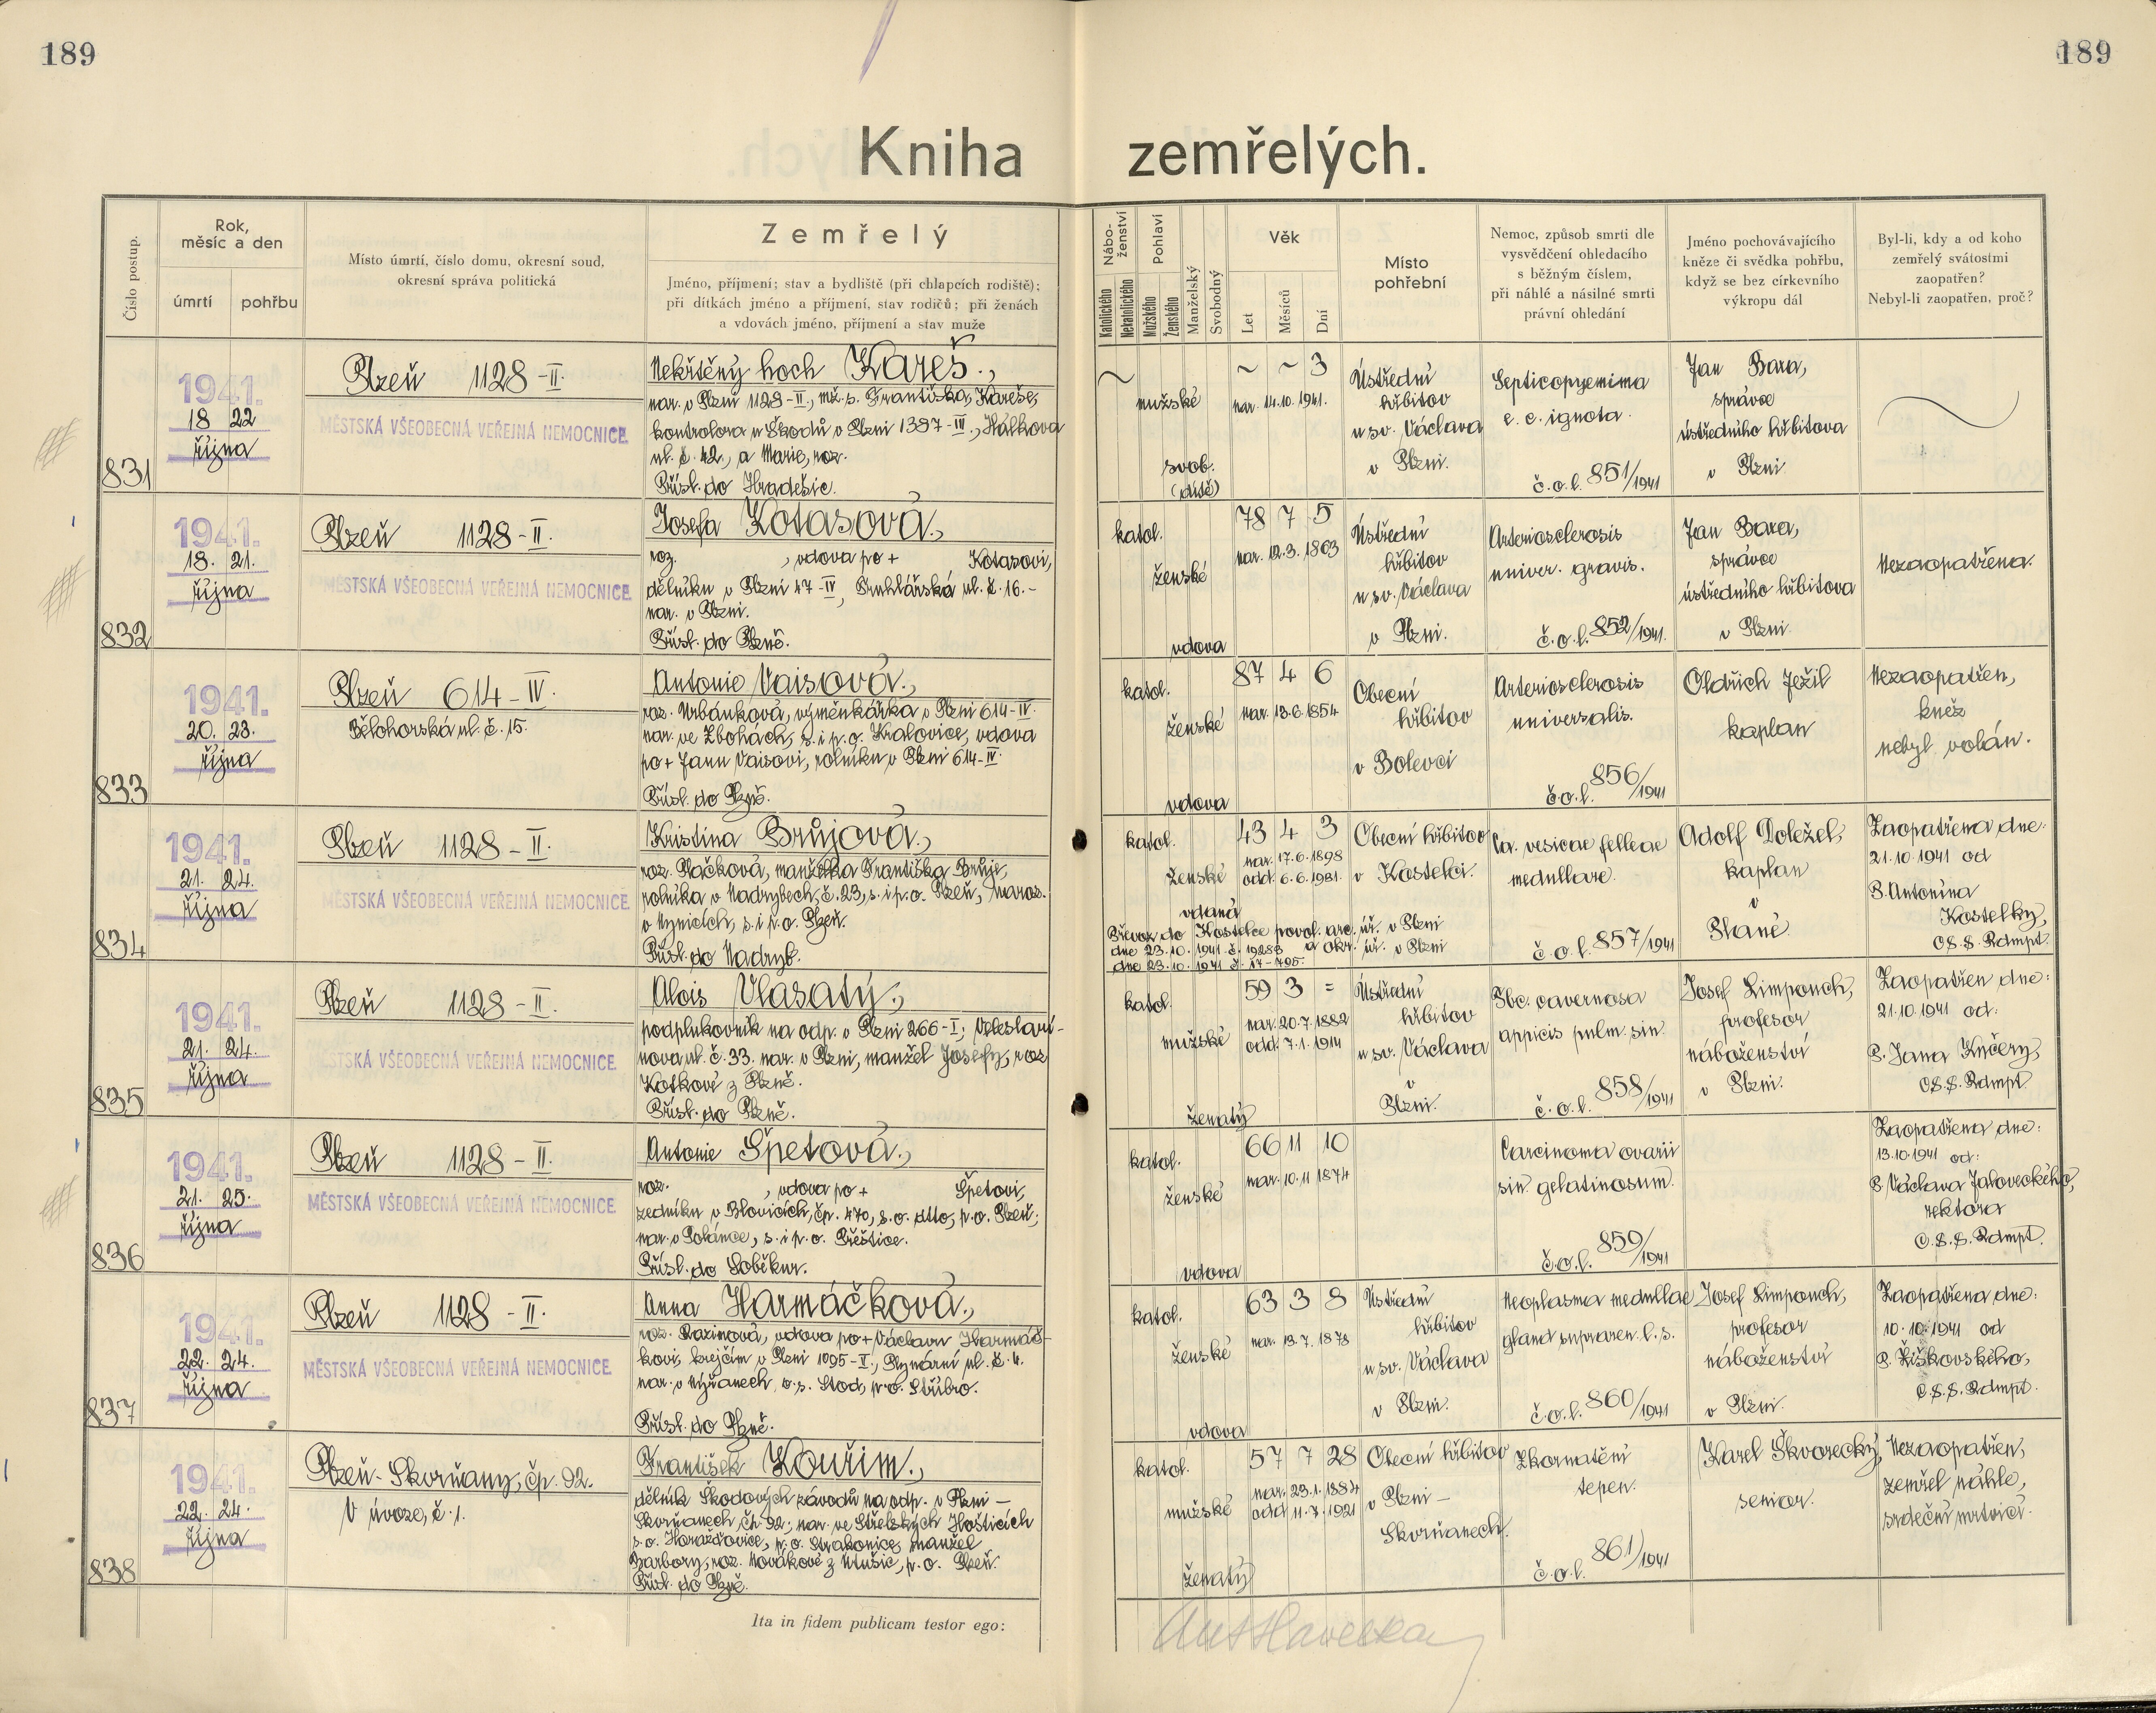 189
189
Kniha zemřelých.
Číslo postup.
Rok,
měsíc a den
úmrtí
pohřbu
Místo úmrtí, číslo domu, okresní soud,
okresní správa politická
Zemřelý
Jméno, příjmení; stav a bydliště (při chlapcích rodiště);
při dítkách jméno a příjmení, stav rodičů; při ženách
a vdovách jméno, příjmení a stav muže
Nábo-
ženství
Katolického
Nekatolického
Pohlaví
Mužského
Ženského
Manželský
Svobodný
Věk
Let
Měsíců
Dní
Místo
pohřební
Nemoc, způsob smrti dle
vysvědčení ohledacího
s běžným číslem,
při náhlé a násilné smrti
právní ohledání
Jméno pochovávajícího
kněze či svědka pohřbu,
když se bez církevního
výkropu dál
Byl-li, kdy a od koho
zemřelý svátostmi
zaopatřen?
Nebyl-li zaopatřen, proč?
831
1941.
18 22
října
Plzeň 1128-II.
MĚSTSKÁ VŠEOBECNÁ VEŘEJNÁ NEMOCNICE
Nekřtěný hoch Kareš.,
nar. v Plzni 1128-II., mž. s. Františka Kareše,
kontrolora u Škodů v Plzni 1387-III., Hálkova
ul. č. 42., a Marie, roz.
Přísl. do Hradešic.
~
mužské
svob.
(dítě)
~ ~ 3
nar. 14.10.1941.
Ústřední
hřbitov
u sv. Václava
v Plzni.
Septicopyemima
e. c. ignota.
č.o.l. 851/1941
Jan Bara,
správce
ústředního hřbitova
v Plzni
832
1941.
18. 21.
října
Plzeň 1128-II.
MĚSTSKÁ VŠEOBECNÁ VEŘEJNÁ NEMOCNICE
Josefa Kotasová.,
roz. , vdova po + Kotasovi,
dělníku v Plzni 47-IV, Truhlářská ul. č. 16.-
nar. v Plzni.
Přísl. do Plzně.
katol.
ženské
vdova
78 7 5
nar. 12.3.1863
Ústřední
hřbitov
u sv. Václava
v Plzni.
Arteriosclerosis
univer. gravis.
č.o.l. 852/1941.
Jan Bara,
správce
ústředního hřbitova
v Plzni.
Nezaopatřena.
833
1941.
20. 23.
října
Plzeň 614-IV.
Bělohorská ul. č. 15.
Antonie Vaisová.,
roz. Urbánková, výměnkářka v Plzni 614-IV.
nar. ve Zbohách, s. i p. o. Kralovice, vdova
po + Janu Vaisovi, rolníku v Plzni 614-IV.
Přísl. do Plzně.
katol.
ženské
vdova
87 4 6
nar. 13.6.1854
Obecní
hřbitov
v Bolevci
Arteriosclerosis
universalis.
č.o.l. 856/1941
Oldřich Ježil
kaplan
Nezaopatřen,
kněz
nebyl volán.
834
1941.
21. 24.
října
Plzeň 1128-II.
MĚSTSKÁ VŠEOBECNÁ VEŘEJNÁ NEMOCNICE
Kristina Brůjová.,
roz. Plačková, manželka Františka Brůje,
rolníka v Nadrybech, č. 23, s. i p. o. Plzeň, naroz.
v Nynicích, s. i p. o. Plzeň.
Přísl. do Nadryb.
katol.
ženské
vdaná
43 4 3
nar. 17.6.1898
odd. 6.6.1931.
Převoz do Kostelce povol. arc. úř. v Plzni
dne 23.10.1941 č. 19283 a okr. úř. v Plzni
dne 23.10.1941 č. 17-795.
Obecní hřbitov
v Kostelci.
Ca. vesicae felleae
medullare.
č.o.l. 857/1941
Adolf Doležel,
kaplan
v
Plané
Zaopatřena dne:
21.10.1941 od
P. Antonína
Kostelky,
C.S.S. Rdmpt.
835
1941.
21. 24.
října
Plzeň 1128-II.
MĚSTSKÁ VŠEOBECNÁ VEŘEJNÁ NEMOCNICE
Alois Vlasatý.,
podplukovník na odp. v Plzni 266-I; Veleslaví-
nova ul. č. 33. nar. v Plzni, manžel Josefy, roz.
Kotkové z Plzně.
Přísl. do Plzně.
katol.
mužské
ženatý
59 3 =
nar. 20.7.1882
odd. 7.1.1914
Ústřední
hřbitov
u sv. Václava
v
Plzni.
Tbc. cavernosa
appicis pulm. sin.
č.o.l. 858/1941
Josef Limpouch,
profesor
náboženství
v Plzni.
Zaopatřen dne:
21.10.1941 od:
P. Jana Kučery,
C.S.S. Rdmpt
836
1941.
21. 25.
října
Plzeň 1128-II.
MĚSTSKÁ VŠEOBECNÁ VEŘEJNÁ NEMOCNICE
Antonie Špetová.,
roz. , vdova po + Špetovi,
zedníku v Blovicích, čp. 470, s. o. dtto, p. o. Plzeň;
nar. v Polánce, s. i p. o. Přeštice.
Přísl. do Soběkur.
katol.
ženské
vdova
66 11 10
nar. 10.11 1874
Carcinoma ovarii
sin gelatinosum.
č.o.l. 859/1941
Zaopatřena dne:
13.10.1941 od:
P. Václava Jaloveckého,
rektora
C.S.S. Rdmpt.
837
1941.
22. 24.
října
Plzeň 1128-II.
MĚSTSKÁ VŠEOBECNÁ VEŘEJNÁ NEMOCNICE
Anna Harmáčková.,
roz. Razimová, vdova po + Václavu Harmáč-
kovi, krejčím v Plzni 1095-I., Plynární ul. č. 4.
nar. v Nýřanech, o. s. Stod, p. o. Stříbro.
Přísl. do Plzně.
katol.
ženské
vdova
63 3 8
nar. 13.7.1878
Ústřední
hřbitov
u sv. Václava
v Plzni.
Neoplasma medullae
gland supraren. l. s.
č.o.l. 860/1941
Josef Limpouch,
profesor
náboženství
v Plzni.
Zaopatřena dne:
10.10.1941 od
P. Žiškovského,
C.S.S. Rdmpt.
838
1941.
22. 24.
října
Plzeň-Skvrňany, čp. 92.
V úvoze, č. 1.
František Kouřim.,
dělník Škodových závodů na odp. v Plzni -
Skvrňanech čp. 92; nar. ve Střelských Hošticích
s. o. Horažďovice, p. o. Strakonice, manžel
Barbory, roz. Novákové z Útušic, p. o. Plzeň.
Přísl. do Plzně.
katol.
mužské
ženatý
57 7 28
nar. 23.1.1884
odd 11.7.1921
Obecní hřbitov
v Plzni -
Skvrňanech.
Zkornatění
tepen.
č.o.l. 861/1941
Karel Škvorecký,
senior.
Nezaopatřen,
zemřel náhle,
srdeční mrtvicí.
Ita in fidem publicam testor ego:
Ant Havelka